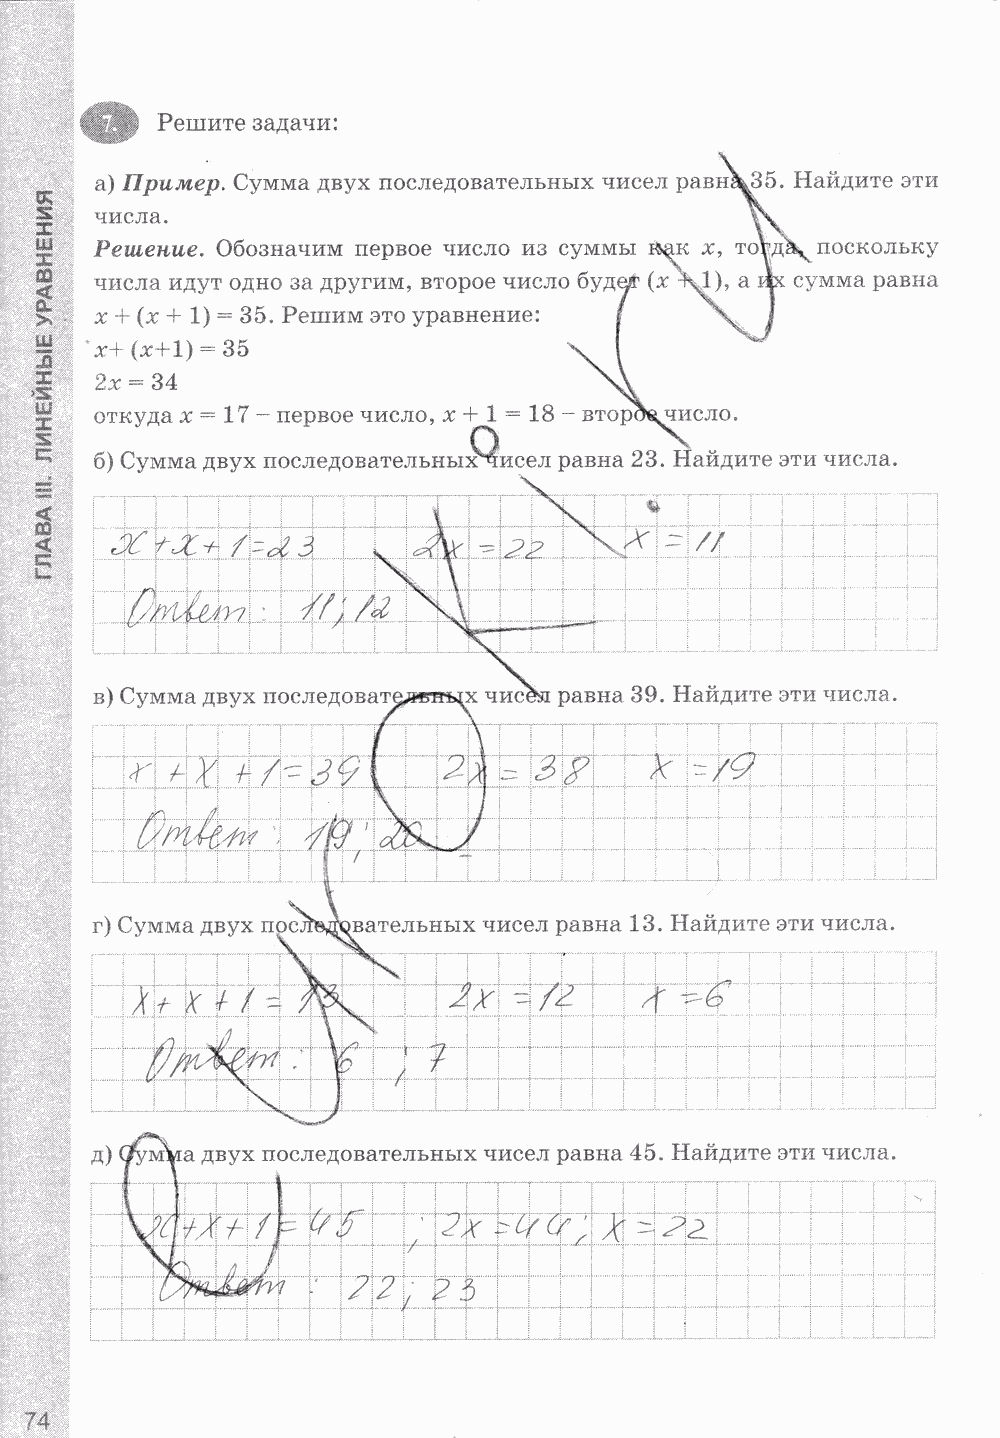 ГЛАВА III. ЛИНЕЙНЫЕ УРАВНЕНИЯ
7. Решите задачи:
а) Пример. Сумма двух последовательных чисел равна 35. Найдите эти
числа.
Решение. Обозначим первое число из суммы как x, тогда, поскольку
числа идут одно за другим, второе число будет (x + 1), а их сумма равна
x + (x + 1) = 35. Решим это уравнение:
x+ (x+1) = 35
2x = 34
откуда x = 17 – первое число, x + 1 = 18 – второе число.
б) Сумма двух последовательных чисел равна 23. Найдите эти числа.
x+x+1=23 2x=22 x=11
Ответ: 11; 12
в) Сумма двух последовательных чисел равна 39. Найдите эти числа.
x+x+1=39 2x=38 x=19
Ответ: 19; 20
г) Сумма двух последовательных чисел равна 13. Найдите эти числа.
x+x+1=13 2x=12 x=6
Ответ: 6; 7
д) Сумма двух последовательных чисел равна 45. Найдите эти числа.
x+x+1=45; 2x=44; x=22
Ответ: 22; 23
74